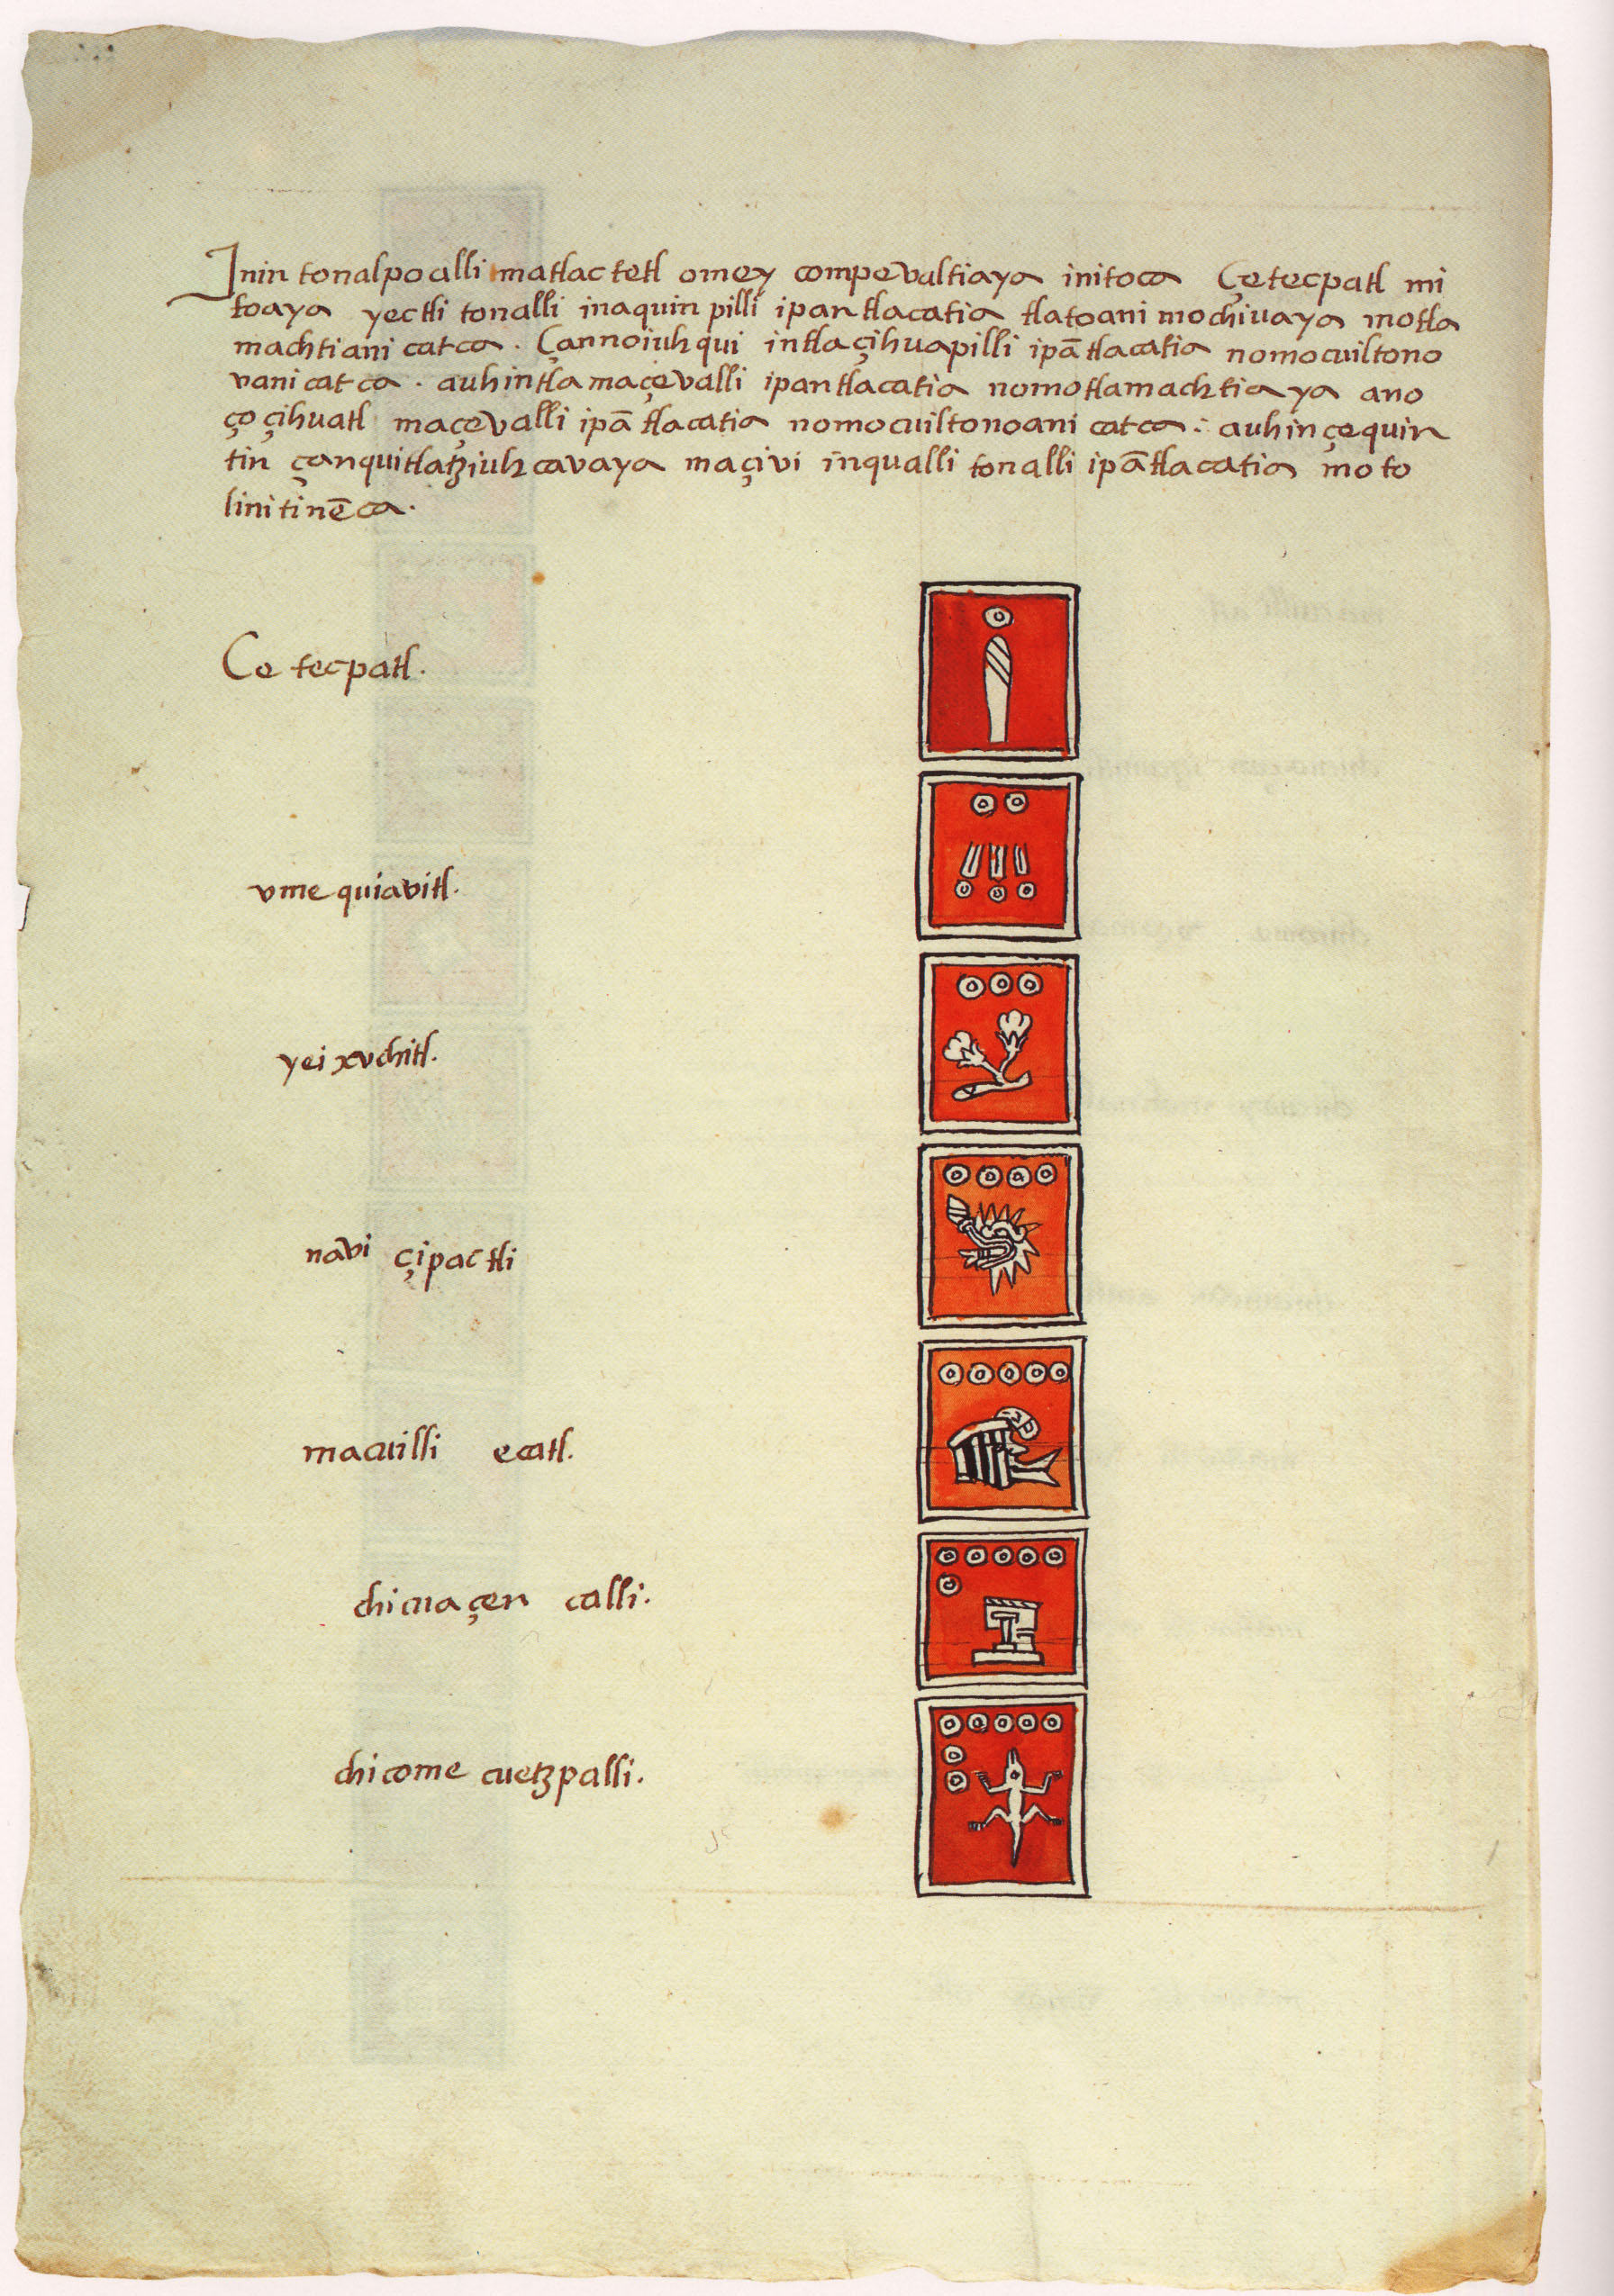 Inin tonalpoalli matlactetl omey compevaltiaya initoca Çetecpatl mi
toaya yectli tonalli inaquin pilli ipan tlacatia tlatoani mochivaya motla
machtiani catca. Çannoiuhqui intla çihuapilli ipā tlacatia nomocuiltono
vani catca. auh intla maçevalli ipan tlacatia nomotlamachtiaya ano
ço çihuatl maçevalli ipā tlacatia nomocuiltonoani catca: auh in çequin
tin çanquitlatziuhcavaya maçivi inqualli tonalli ipā tlacatia moto
linitinēca.
Ce tecpatl.
vme quiavitl.
yei xvchitl.
navi çipactli
macuilli ecatl.
chicuaçen calli.
chicome cuetzpalli.